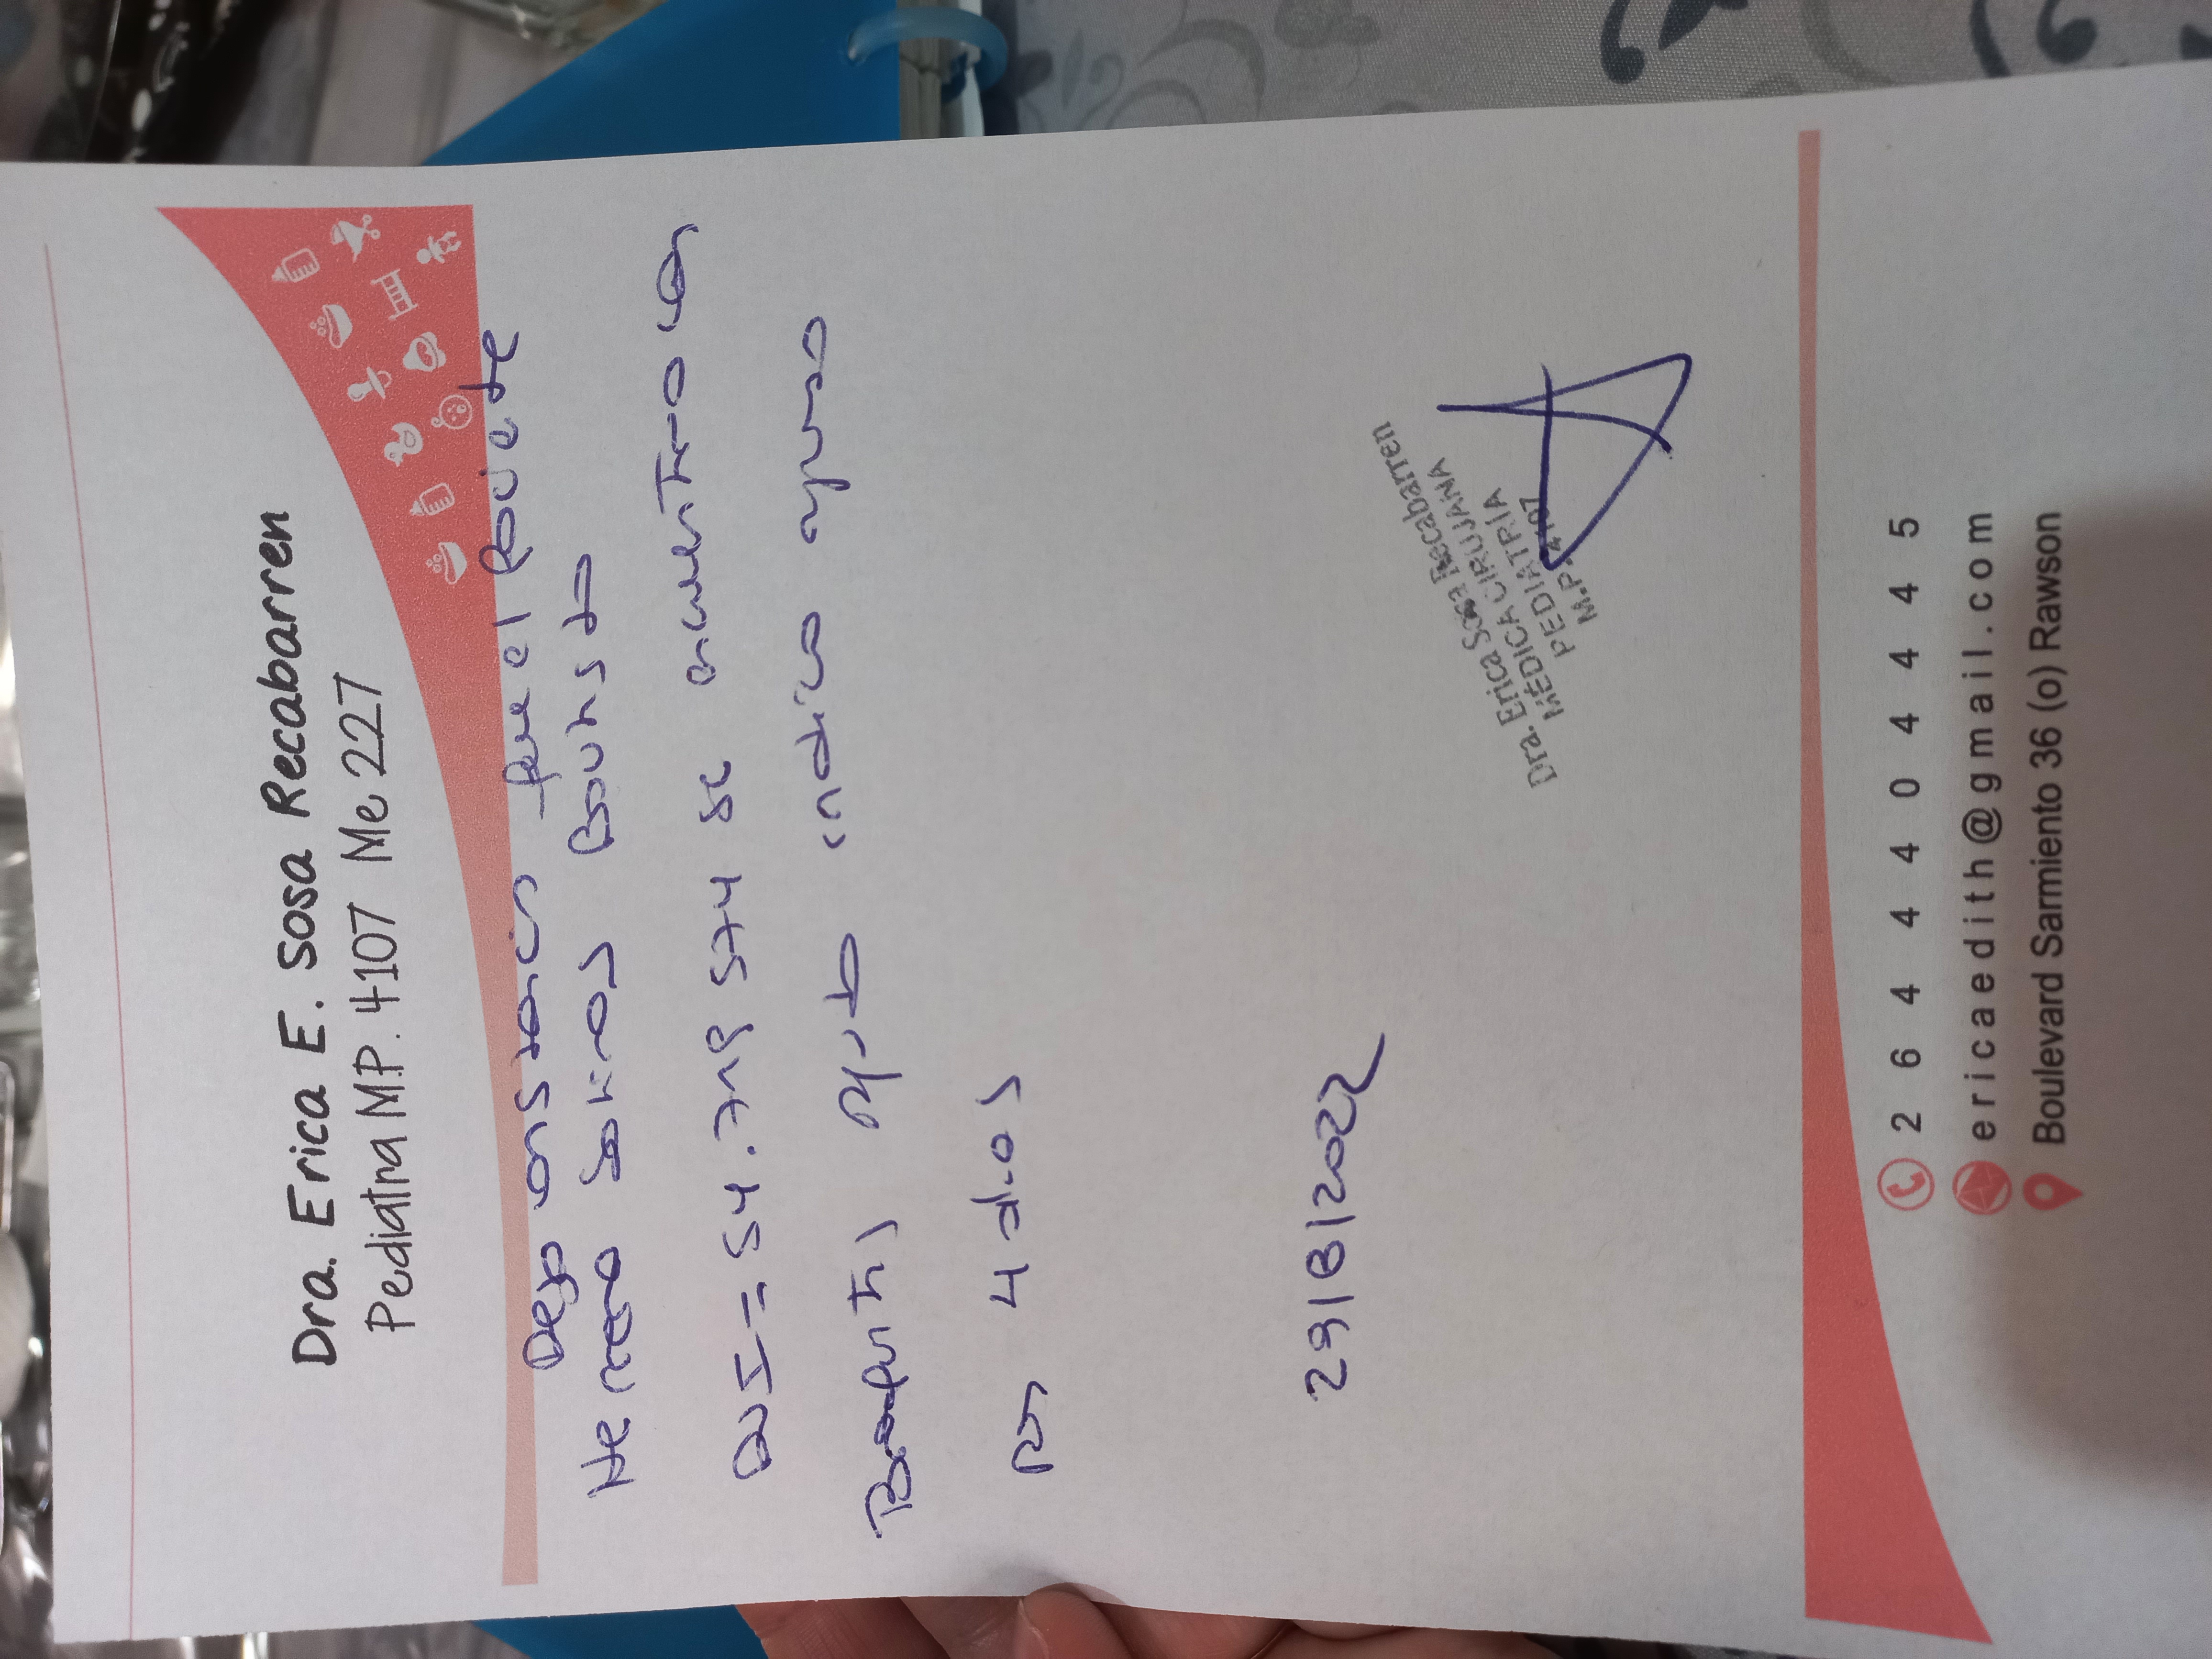 Dra. Erica E. Sosa Recabarren
Pediatra M.P. 4107 Me 227
Dejo constancia que el paciente
Herrera Salinas Bautista
DNI = 54.719 574 se encuentra con
Bronquitis aguda indico reposo
por 4 dias
29/8/2022
Dra. Erica Sosa Recabarren
MÉDICA CIRUJANA
PEDIATRÍA
M.P. 4107
2644404445
ericaedith@gmail.com
Boulevard Sarmiento 36 (o) Rawson